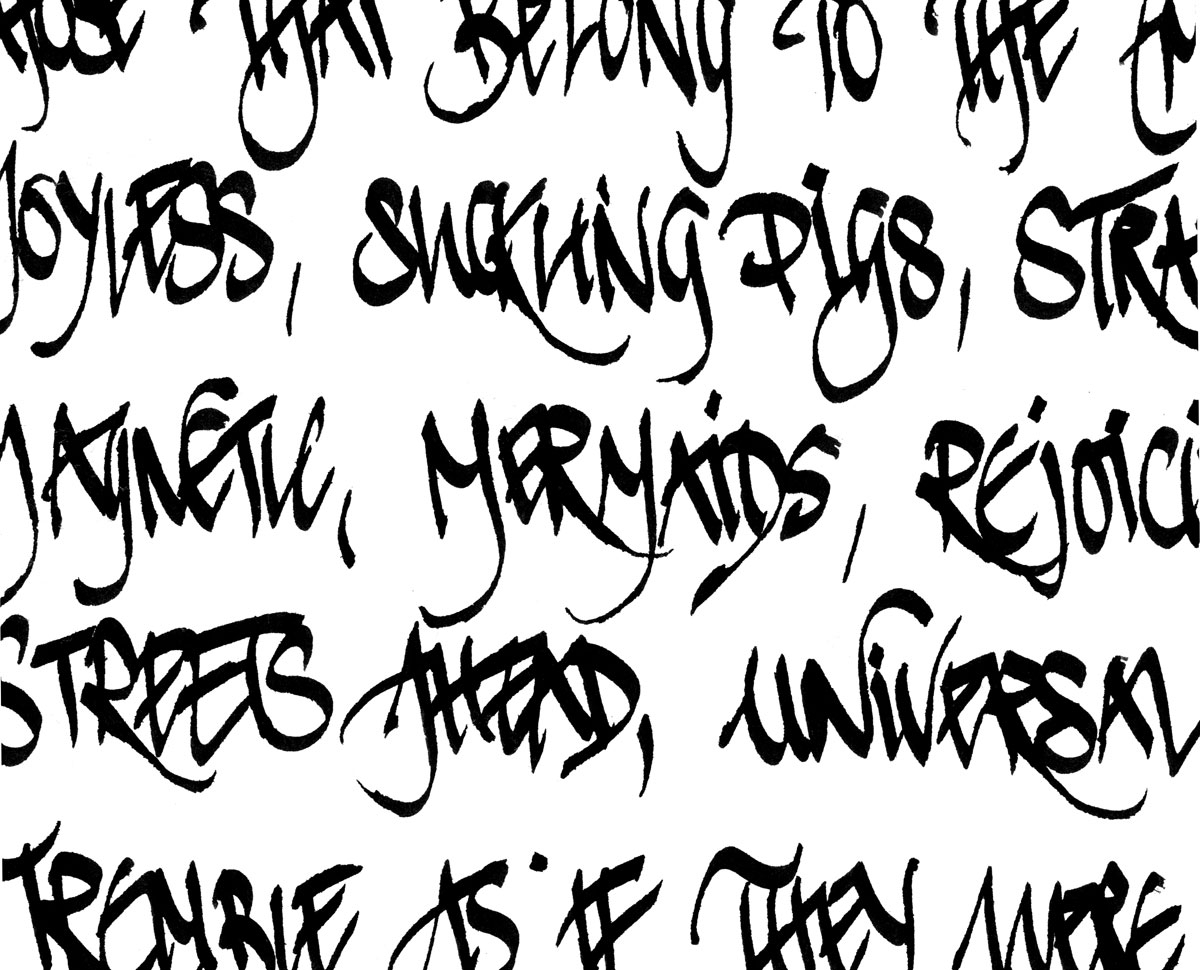 THOSE THAT BELONG TO THE
JOYLESS, SUCKLING PIGS, STRA
MAGNETIC, MERMAIDS, REJOICI
STREETS AHEAD, UNIVERSAL
TREMBLE AS IF THEY WERE